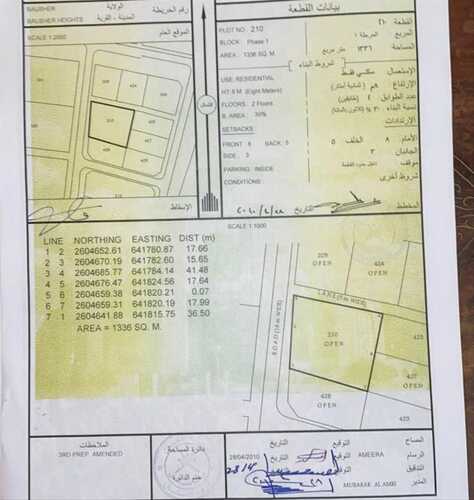 BAUSHER
الولاية
BAUSHER HEIGHTS
المدينة - القرية
رقم الخريطة
SCALE 1:2000
الموقع العام
210
الشمال
الإسقاط
بيانات القطعة
PLOT NO : 210
القطعة
BLOCK : Phase 1
المربع
المرحلة ١
AREA : 1336 SQ. M.
المساحة
١٣٣٦ متر مربع
شروط البناء
USE: RESIDENTIAL
الإستعمال
سكني فقط
HT: 8 M (Eight Meters)
الإرتفاع
٨م (ثمانية أمتار)
FLOORS : 2 Floors
عدد الطوابق
B. AREA : 39%
نسبة البناء
SETBACKS
الإرتدادات
FRONT : 8 BACK : 5
الأمام ٨ الخلف ٥
SIDE : 3
الجانبان ٣
PARKING: INSIDE
موقف
داخل حدود القطعة
CONDITIONS :
شروط أخرى
التاريخ
المخطط
SCALE 1:1000
LINE NORTHING EASTING DIST (m)
1 2 2604652.61 641780.87 17.66
2 3 2604670.19 641782.60 15.65
3 4 2604685.77 641784.14 41.48
4 5 2604676.47 641824.56 17.64
5 6 2604659.38 641820.21 0.07
6 7 2604659.31 641820.19 17.99
7 1 2604641.88 641815.75 36.50
AREA = 1336 SQ. M.
229
OPEN
OPEN
OPEN
210
OPEN
427
OPEN
428
OPEN
425
الملاحظات
3RD PREP. AMENDED
دائرة المساحة
ختم الدائرة
التاريخ
التوقيع
المساح
28/04/2010
التاريخ
التوقيع
AMEERA
الرسام
التاريخ
التوقيع
التدقيق
MUBARAK AL AMRI
المدير